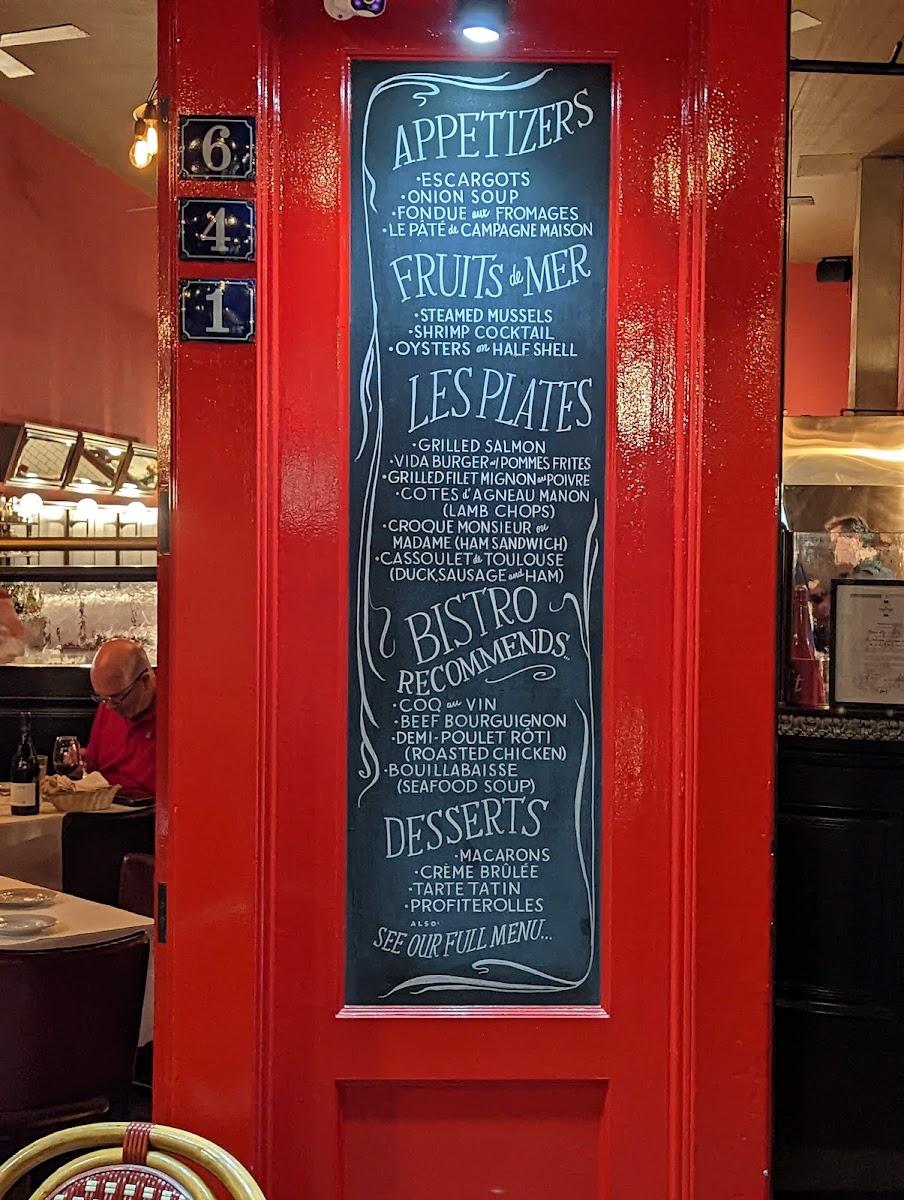 6
4
1
APPETIZERS
·ESCARGOTS
·ONION SOUP
·FONDUE aux FROMAGES
·LE PÂTÉ de CAMPAGNE MAISON
FRUITS de MER
·STEAMED MUSSELS
·SHRIMP COCKTAIL
·OYSTERS on HALF SHELL
LES PLATES
·GRILLED SALMON
·VIDA BURGER w/ POMMES FRITES
·GRILLED FILET MIGNON au POIVRE
·COTES d'AGNEAU MANON
(LAMB CHOPS)
·CROQUE MONSIEUR ou
MADAME (HAM SANDWICH)
·CASSOULET de TOULOUSE
(DUCK, SAUSAGE and HAM)
BISTRO
RECOMMENDS...
·COQ au VIN
·BEEF BOURGUIGNON
·DEMI-POULET RÔTI
(ROASTED CHICKEN)
·BOUILLABAISSE
(SEAFOOD SOUP)
DESSERTS
·MACARONS
·CRÈME BRÛLÉE
·TARTE TATIN
·PROFITEROLLES
ALSO·
SEE OUR FULL MENU...